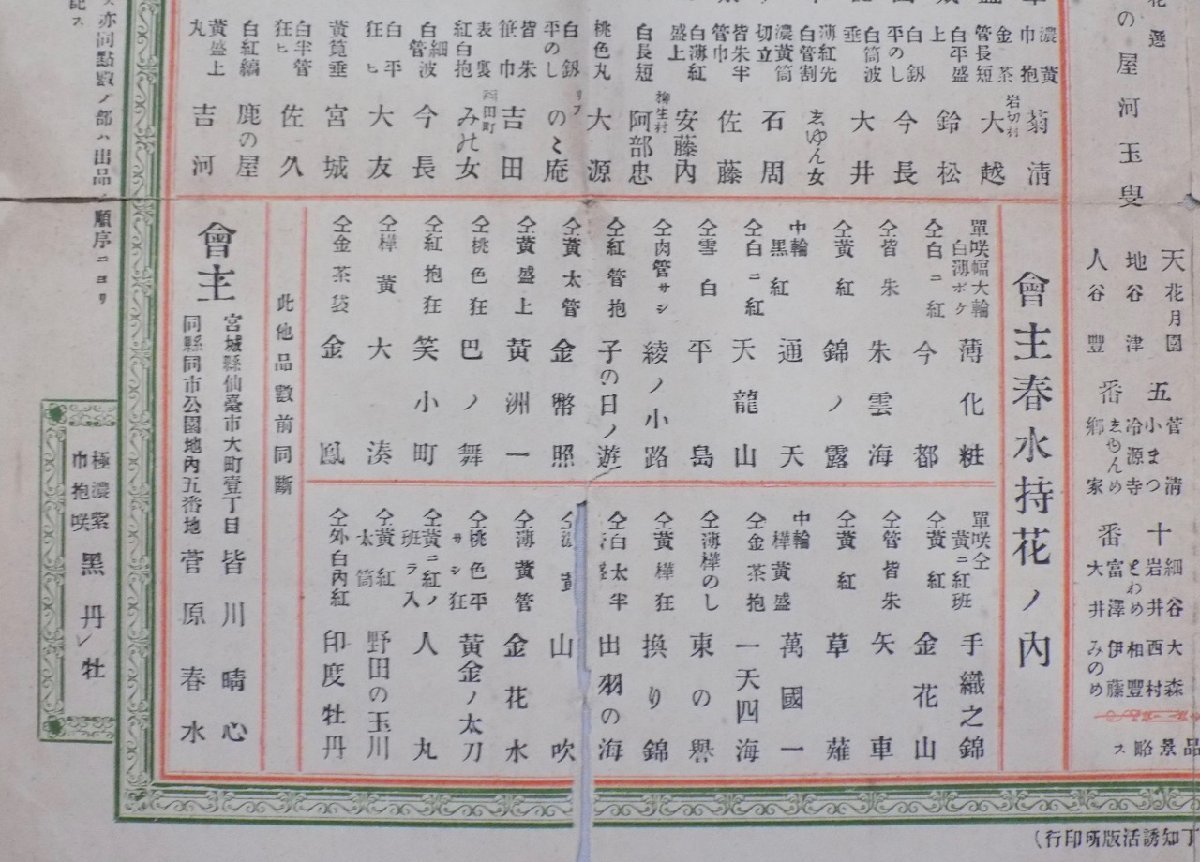 花選
の屋河玉叟
天花月園
地谷津
人谷豐
五番
菅清
小まつ
冷源寺
ゑゆんめ
鄕家
十番
細谷
岩井
とわめ
富澤
大井
大森
西村
相豐
伊藤
みのめ
品景略ス
濃黄巾抱 菊淸
金茶 岩切村 大越
管長短
白平盛上 鈴松
白釼平のし 今長
白筒波垂 大井
薄紅先白管割 ゑゆん女
濃黄筒切立 石周
皆朱半管巾 佐藤
白薄紅盛上 安藤內
白長短 柳生村 阿部忠
桃色丸 大源
白釼平のし のゝ庵
皆朱笹巾 吉田
表裏紅白抱 みの女
白細管波 今長
白平狂ヒ 大友
黄筧垂 宮城
白半管狂ヒ 佐久
白紅縞 鹿の屋
黄盛上丸 吉河
會主春水持花ノ內
單咲幅大輪白薄ボク 薄化粧
仝白ニ紅 今都
仝皆朱 朱雲海
仝黄紅 錦ノ露
中輪黒紅 通天
仝白ニ紅 天龍山
仝雪白 平島
仝肉管サシ 綾ノ小路
仝紅管抱 子の日ノ遊
仝黄太管 金幣照
仝黄盛上 黄洲一
仝桃色狂 巴ノ舞
仝紅抱狂 笑小町
仝樺黄 大湊
仝金茶袋 金鳳
單咲仝黄ニ紅班 手織之錦
仝黄紅 金花山
仝管皆朱 矢車
仝黄紅 草薙
中輪樺黄盛 萬國一
仝金茶抱 一天四海
仝薄樺のし 東の譽
仝黄樺狂 換り錦
仝白太半 出羽の海
仝 黄 山吹
仝薄黄管 金花水
仝桃色平サシ狂 黄金ノ太刀
仝黄ニ紅ノ班ラ入 人丸
仝黄紅太筒 野田の玉川
仝外白內紅 印度牡丹
此他品數前同斷
會主
宮城縣仙臺市大町壹丁目 皆川晴心
同縣同市公園地內五番地 菅原春水
亦同點數ノ部ハ出品ノ順序ニヨリ
記ス
極濃紫巾抱咲 黑牡丹
丁知誘活版所印行)